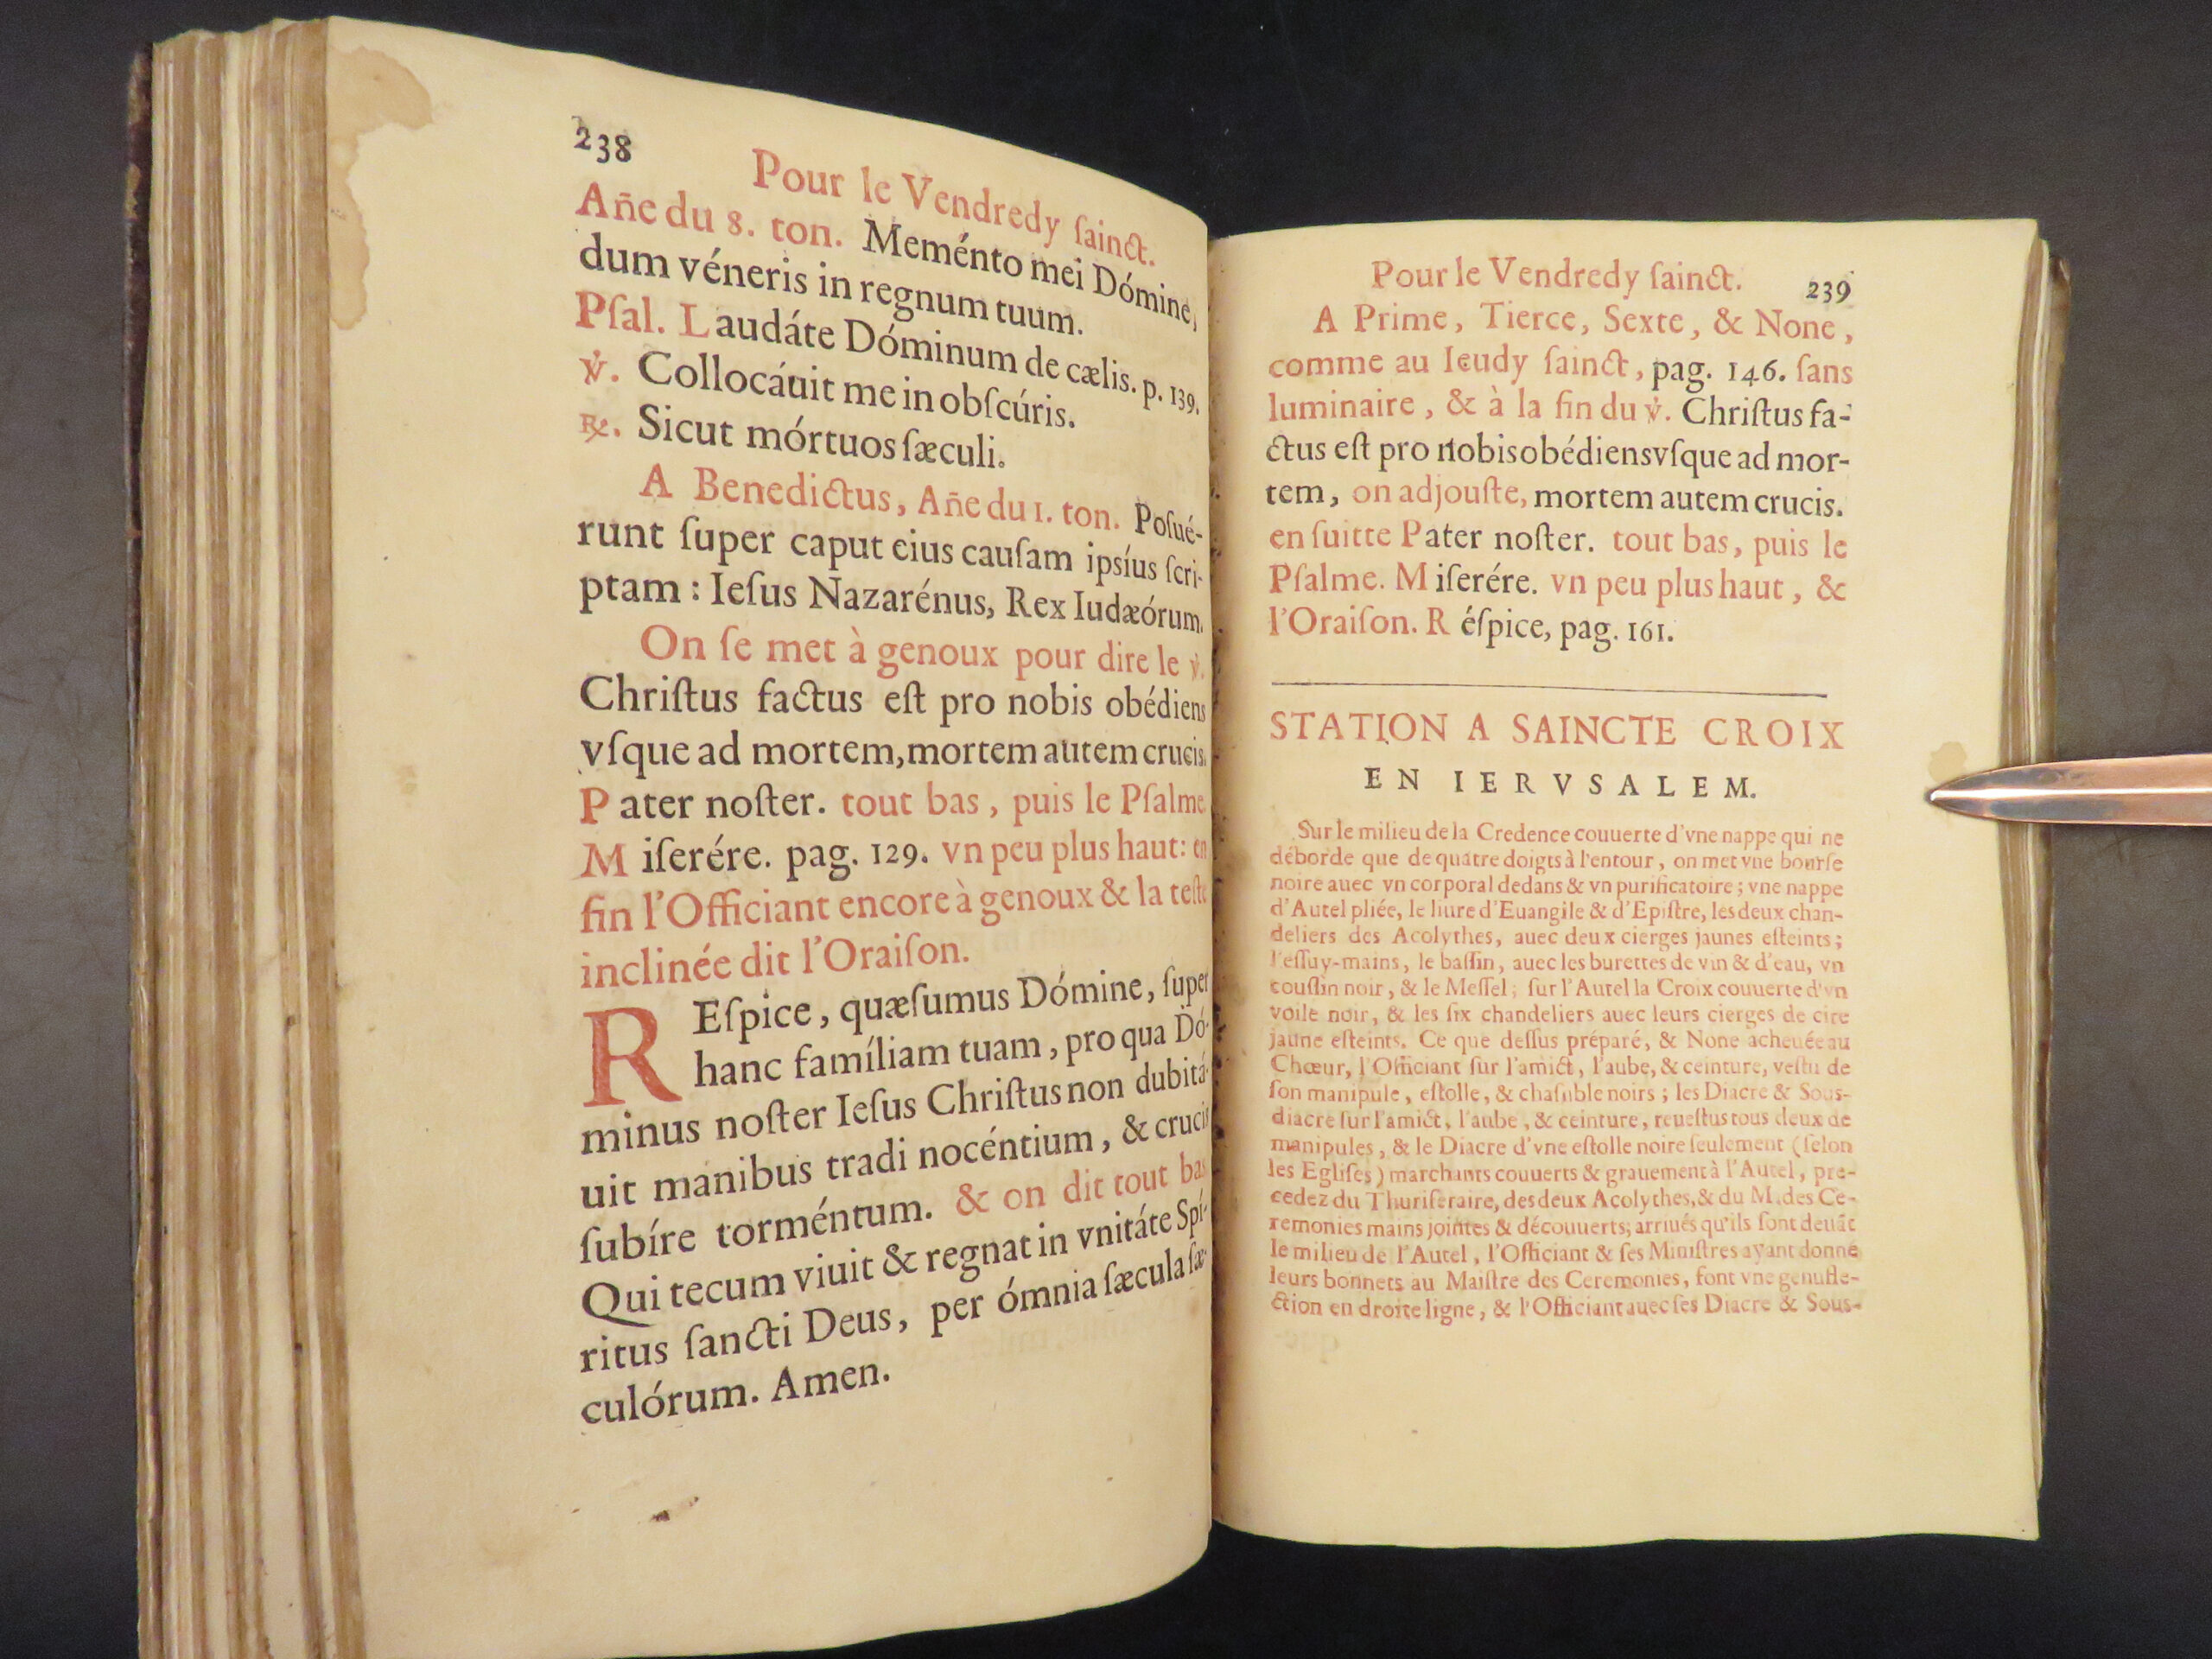 238
Pour le Vendredy ſainct.
Añe du 8. ton. Meménto mei Dómine,
dum véneris in regnum tuum.
Pſal. Laudáte Dóminum de cælis. p. 139.
℣. Collocáuit me in obſcúris.
℟. Sicut mórtuos ſæculi.
A Benedictus, Añe du 1. ton. Poſué-
runt ſuper caput eius cauſam ipsíus ſcri-
ptam : Ieſus Nazarénus, Rex Iudæórum.
On ſe met à genoux pour dire le ℣.
Chriſtus factus eſt pro nobis obédiens
vſque ad mortem, mortem autem crucis.
Pater noſter. tout bas, puis le Pſalme
Miſerére. pag. 129. vn peu plus haut: en
fin l'Officiant encore à genoux & la teſte
inclinée dit l'Oraiſon.
REſpice, quæſumus Dómine, ſuper
hanc famíliam tuam, pro qua Dó-
minus noſter Ieſus Chriſtus non dubitá-
uit manibus tradi nocéntium, & crucis
ſubíre torméntum. & on dit tout bas
Qui tecum viuit & regnat in vnitáte Spí-
ritus ſancti Deus, per ómnia ſæcula ſæ-
culórum. Amen.
Pour le Vendredy ſainct. 239
A Prime, Tierce, Sexte, & None,
comme au Ieudy ſainct, pag. 146. ſans
luminaire, & à la fin du ℣. Chriſtus fa-
ctus eſt pro nobis obédiens vſque ad mor-
tem, on adjouſte, mortem autem crucis.
en ſuitte Pater noſter. tout bas, puis le
Pſalme. Miſerére. vn peu plus haut, &
l'Oraiſon. Réſpice, pag. 161.
STATION A SAINCTE CROIX
EN IERVSALEM.
Sur le milieu de la Credence couuerte d'vne nappe qui ne
déborde que de quatre doigts à l'entour, on met vne bourſe
noire auec vn corporal dedans & vn purificatoire ; vne nappe
d'Autel pliée, le liure d'Euangile & d'Epiſtre, les deux chan-
deliers des Acolythes, auec deux cierges jaunes eſteints ;
l'eſſuy-mains, le baſſin, auec les burettes de vin & d'eau, vn
couſſin noir, & le Meſſel ; ſur l'Autel la Croix couuerte d'vn
voile noir, & les ſix chandeliers auec leurs cierges de cire
jaune eſteints. Ce que deſſus préparé, & None acheuée au
Chœur, l'Officiant ſur l'amict, l'aube, & ceinture, veſtu de
ſon manipule, eſtolle, & chaſuble noirs ; les Diacre & Sous-
diacre ſur l'amict, l'aube, & ceinture, reueſtus tous deux de
manipules, & le Diacre d'vne eſtolle noire ſeulement (ſelon
les Egliſes) marchants couuerts & grauement à l'Autel, pre-
cedez du Thuriferaire, des deux Acolythes, & du M. des Ce-
remonies mains jointes & découuerts; arriués qu'ils ſont deuāt
le milieu de l'Autel, l'Officiant & ſes Miniſtres ayant donné
leurs bonnets au Maiſtre des Ceremonies, font vne genufle-
ction en droite ligne, & l'Officiant auec ſes Diacre & Sous-